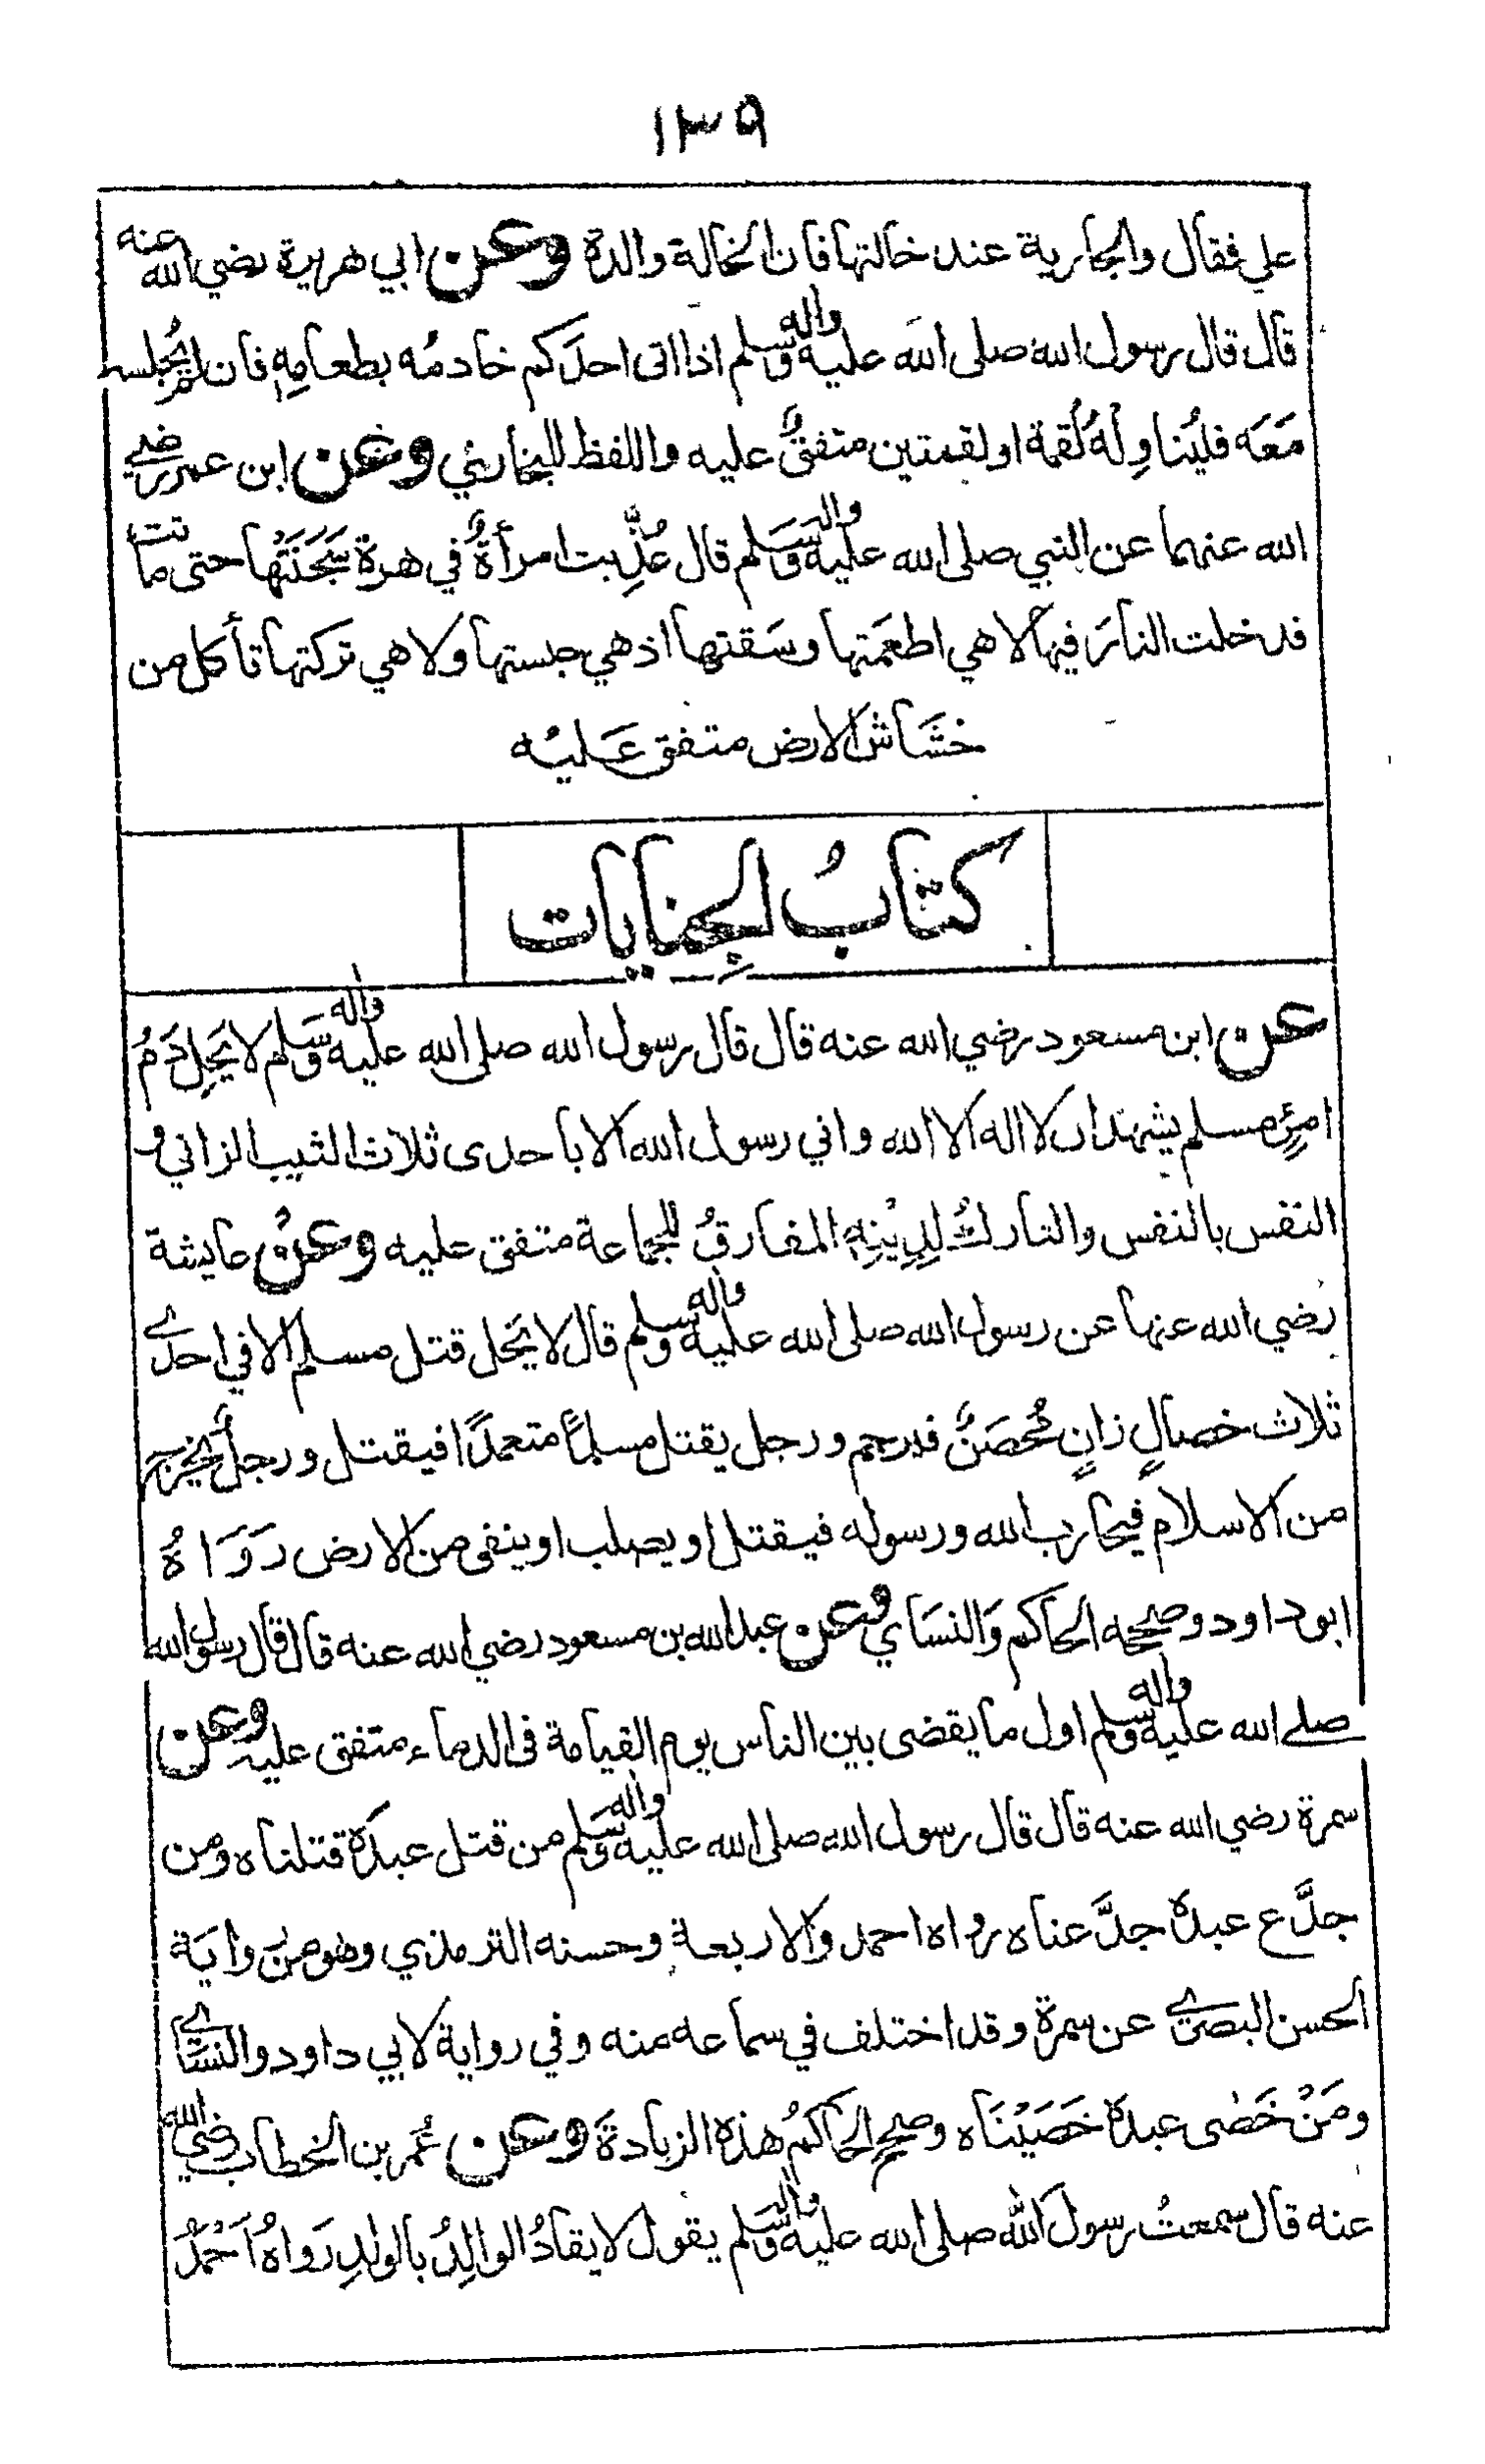 ١٣٩
علي فقال والجارية عند خالتها فان الخالة والدة وعن ابي هريرة رضي الله عنه
قال قال رسول الله صلى الله عليه واله وسلم اذا اتى احدَكم خادمُه بطعامِهِ فان لم يُجلسه
مَعَه فليُناوِلْهُ لُقمة او لقمتين متفقٌ عليه واللفظ للبخاري وعن ابن عمر رضي
الله عنهما عن النبي صلى الله عليه واله وسلم قال عُذِّبت امرأةٌ في هرة سَجَنَتْها حتى ماتت
فدخلت النارَ فيها لا هي اطعَمَتها وسَقتها اذ هي حبستها ولا هي تركتها تأكل من
خشَاش الارض متفق عَليْه
كتابُ الجِنايات
عن ابن مسعود رضي الله عنه قال قال رسول الله صلى الله عليه واله وسَلم لا يَحِل دَمُ
امرِئٍ مسلم يشهد ان لا اله الا الله واني رسول الله الا باحدى ثلاث الثيب الزاني و
النفس بالنفس والتارك لِدِيْنِهِ المفارقُ للجماعة متفق عليه وعنْ عايشة
رضي الله عنها عن رسول الله صلى الله عليه واله وسلم قال لا يَحل قتل مسلم الا في احدى
ثلاث خصالٍ زانٍ مُحصَنٌ فيرجم ورجل يقتل مسلمًا متعمدًا فيقتل ورجلٌ يخرج
من الاسلام فيحارب الله ورسوله فيقتل او يصلب او ينفى من الارض رَوَاهُ
ابو داود وصححه الحاكم وَالنسَاي وعن عبد الله بن مسعود رضي الله عنه قال قال رسول الله
صلى الله عليه واله وسلم اول ما يقضى بين الناس يوم القيامة في الدماء متفق عليه وعن
سمرة رضي الله عنه قال قال رسول الله صلى الله عليه واله وسَلم من قتل عبدَه قتلناه ومن
جدَّع عبدَه جدَّعناه رواه احمد والاربعة وحسنه الترمذي وهو من رواية
الحسن البصري عن سمرة وقد اختلف في سماعه منه وفي رواية لابي داود والنسَّاي
ومَنْ خَصٰى عبدَه خَصَيْنَاه وصحح الحاكمُ هذه الزيادةَ وعن عُمر بن الخطاب رضي الله
عنه قال سمعتُ رسول الله صلى الله عليه واله وسَلم يقول لا يقادُ الوالِدُ بالولدِ رَواهُ اَحْمَدُ